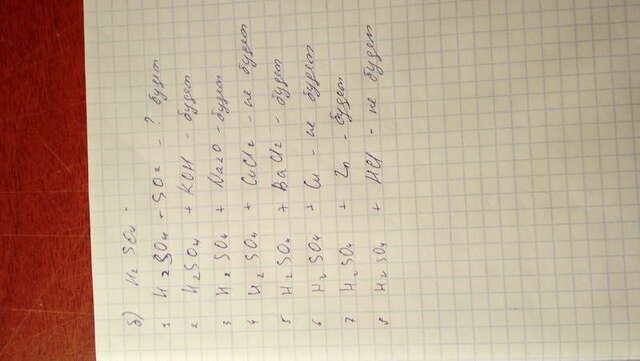 б) H2 SO4 -
1 H2SO4 - SO2 - ? будет
2 H2SO4 + KOH - будет
3 H2 SO4 + Na2O - будет
4 H2 SO4 + CuCl2 - не будет
5 H2 SO4 + BaCl2 - будет
6 H2 SO4 + Cu - не будет
7 H2SO4 + Zn - будет
8 H2SO4 + HCl - не будет